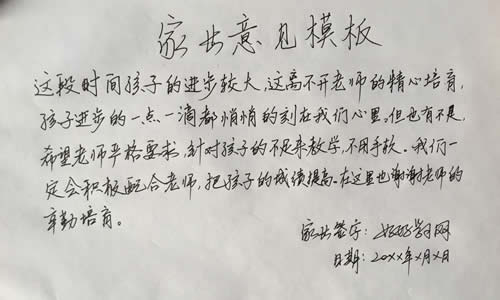 家长意见模板
这段时间孩子的进步较大，这离不开老师的精心培育，
孩子进步的一点一滴都悄悄的刻在我们心里。但也有不足，
希望老师严格要求，针对孩子的不足来教学，不用手软。我们一
定会积极配合老师，把孩子的成绩提高。在这里也谢谢老师的
辛勤培育。
家长签字：好好学习网
日期：20xx年x月x日